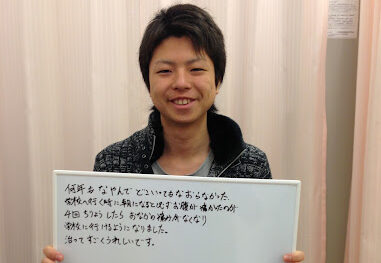 何年もなやんでどこいってもなおらなかった、
学校へ行く時に朝になると必ずお腹が痛かったのが
4回ちりょうしたらおなかの痛みがなくなり
学校に行けるようになりました。
治ってすごくうれしいです。